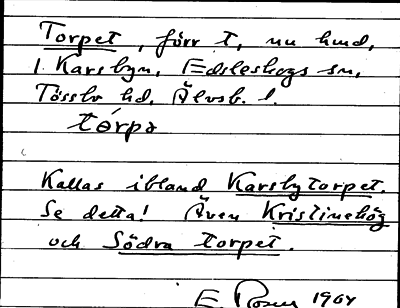 Torpet, förr t, nu hmd,
i Karsbyn, Edsleskogs sn,
Tössbo hd, Älvsb. l.
tórpa
Kallas ibland Karsbytorpet.
Se detta! Även Kristinehög
och Södra torpet.
E. Rosen 1964